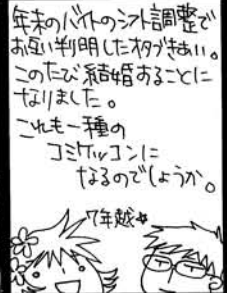 年末のバイトのシフト調整で
お互い判明したオタづきあい。
このたび結婚することに
なりました。
これも一種の
コミケッコンに
なるのでしょうか。
7年越☆